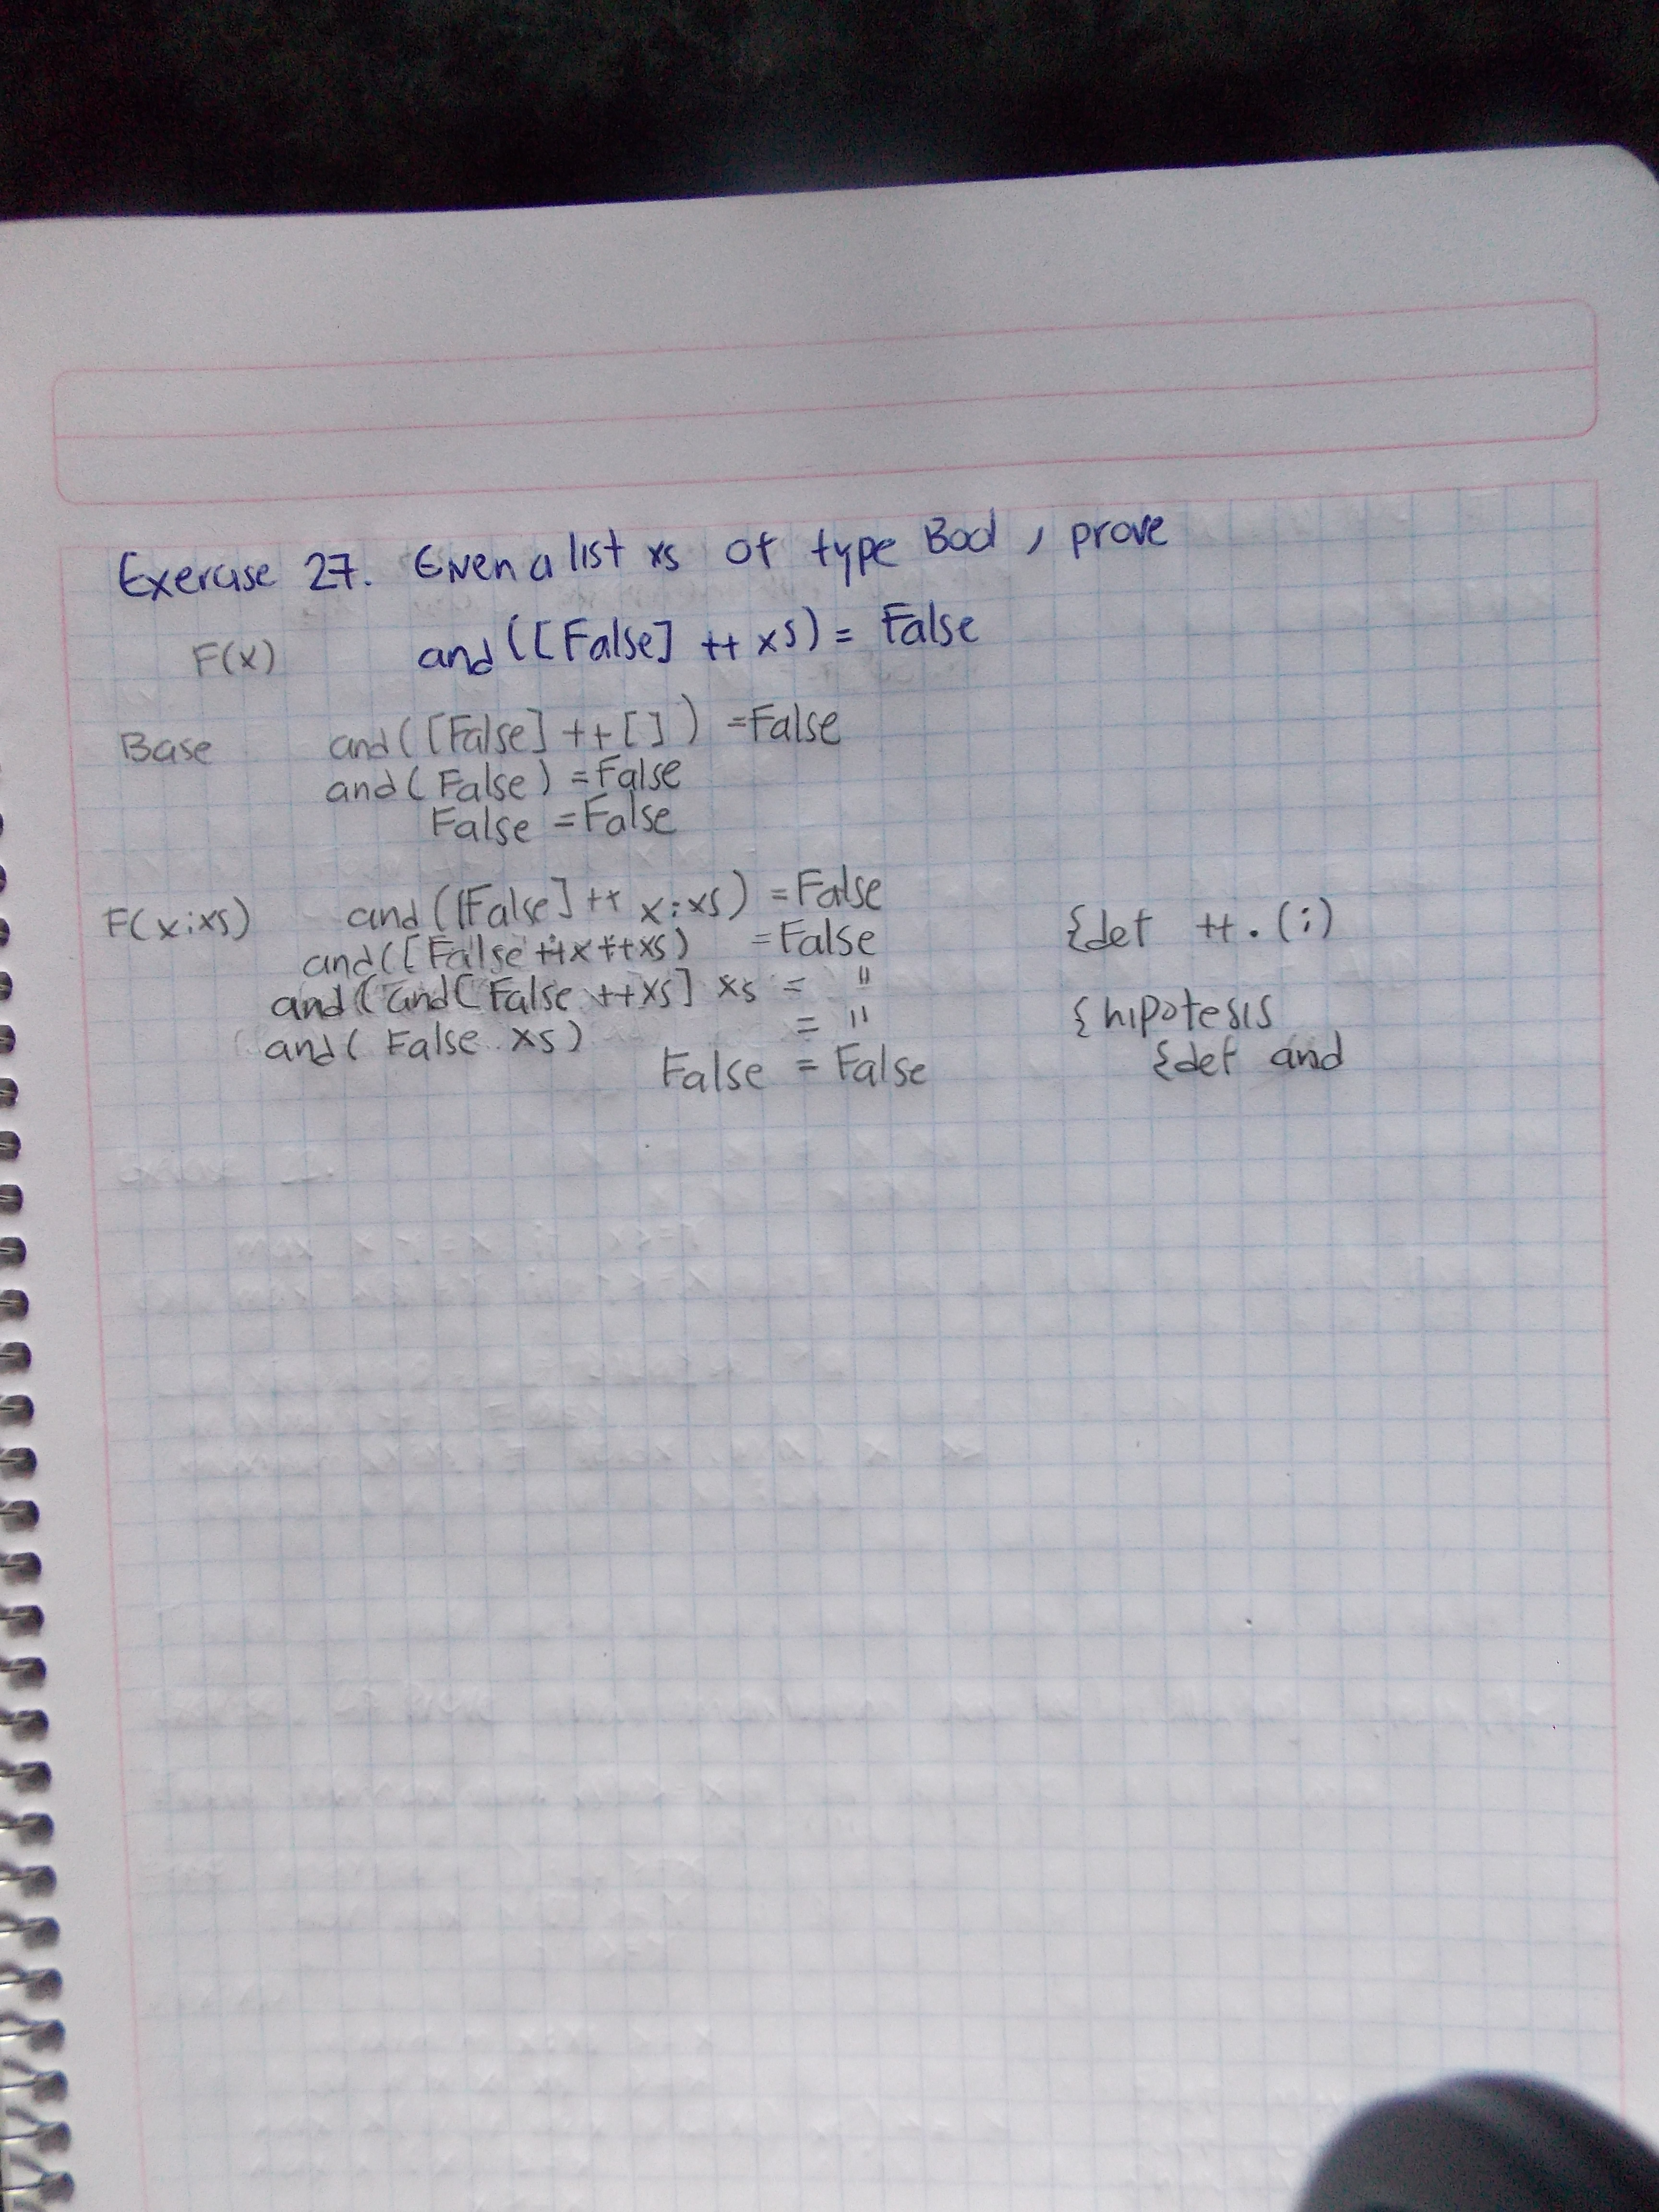 Exercise 27. Given a list xs of type Bool, prove
F(x) and([False] ++ xs) = False
Base and([False] ++ []) = False
and(False) = False
False = False
F(x:xs) and([False] ++ x:xs) = False
and([False ++ x ++ xs) = False {def ++.(:)
and(and(False ++ xs] xs = "
and(False xs) = " {hipotesis
False = False {def and